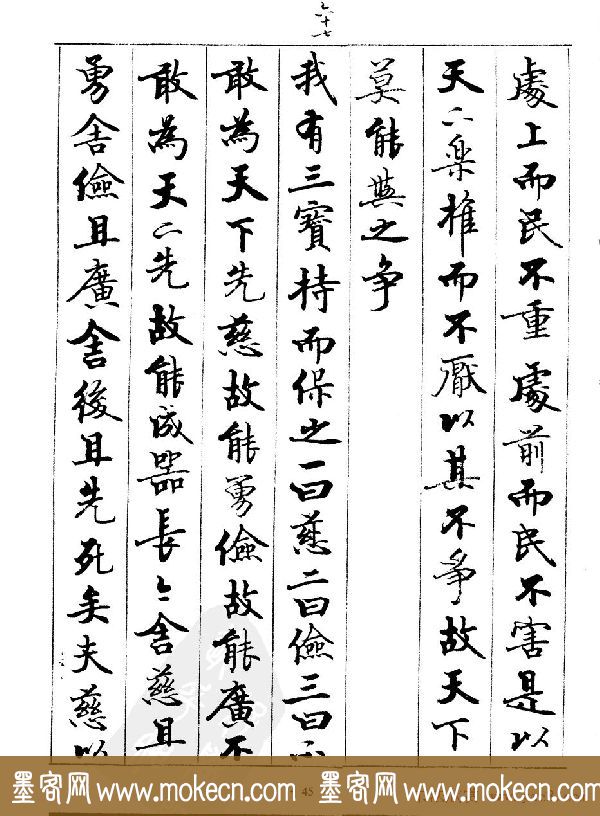 六十七
處上而民不重處前而民不害是以
天二楽推而不厭以其不爭故天下
莫能與之争
我有三寶持而保之一曰慈二曰儉三曰不
敢為天下先慈故能勇儉故能廣不
敢為天二先故能成器長今舍慈且
勇舍儉且廣舍後且先死矣夫慈以
墨客网 www.mokecn.com 墨客网 www.mokecn.com
45